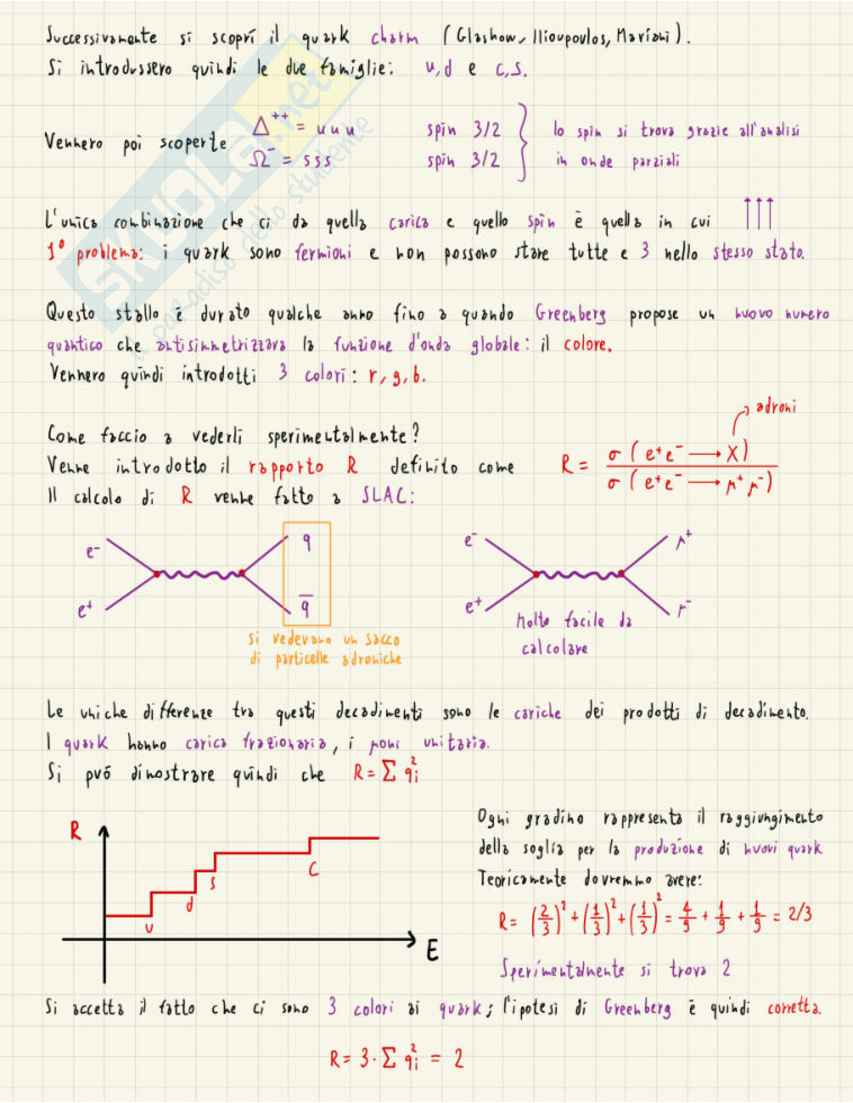 Successivamente si scoprì il quark charm (Glashow, Ilioupoulos, Mariani).
Si introdussero quindi le due famiglie: u,d e c,s.
Vennero poi scoperte
Δ⁺⁺ = u u u spin 3/2
Ω⁻ = s s s spin 3/2
lo spin si trova grazie all'analisi
in onde parziali
L'unica combinazione che ci da quella carica e quello spin è quella in cui ↑↑↑
1° problema: i quark sono fermioni e non possono stare tutte e 3 nello stesso stato.
Questo stallo è durato qualche anno fino a quando Greenberg propose un nuovo numero
quantico che antisimmetrizzava la funzione d'onda globale: il colore.
Vennero quindi introdotti 3 colori: r, g, b.
Come faccio a vederli sperimentalmente?
adroni
Venne introdotto il rapporto R definito come R = σ(e⁺e⁻ → X) / σ(e⁺e⁻ → μ⁺μ⁻)
Il calcolo di R venne fatto a SLAC:
e⁻ q e⁻ μ⁺
e⁺ q̅ e⁺ μ⁻
si vedevano un sacco
di particelle adroniche
molto facile da
calcolare
Le uniche differenze tra questi decadimenti sono le cariche dei prodotti di decadimento.
I quark hanno carica frazionaria, i muoni unitaria.
Si può dimostrare quindi che R = Σ qᵢ²
R
u d s c
E
Ogni gradino rappresenta il raggiungimento
della soglia per la produzione di nuovi quark
Teoricamente dovremmo avere:
R = (2/3)² + (1/3)² + (1/3)² = 4/9 + 1/9 + 1/9 = 2/3
Sperimentalmente si trova 2
Si accetta il fatto che ci sono 3 colori ai quark; l'ipotesi di Greenberg è quindi corretta.
R = 3 · Σ qᵢ² = 2
SKUOLA.net
il paradiso dello studente